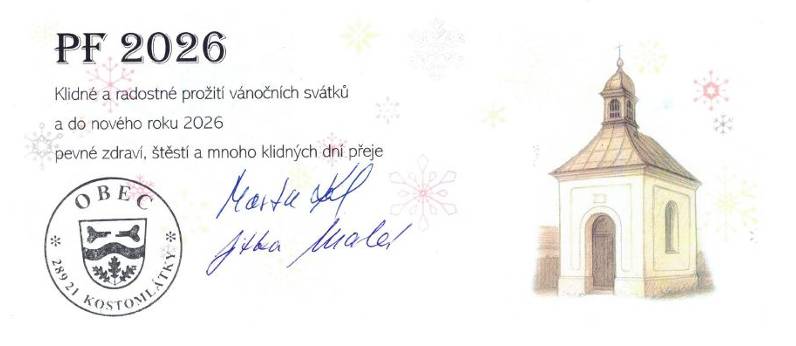 PF 2026
Klidné a radostné prožití vánočních svátků
a do nového roku 2026
pevné zdraví, štěstí a mnoho klidných dní přeje
OBEC
* 289 21 KOSTOMLÁTKY *
Jitka